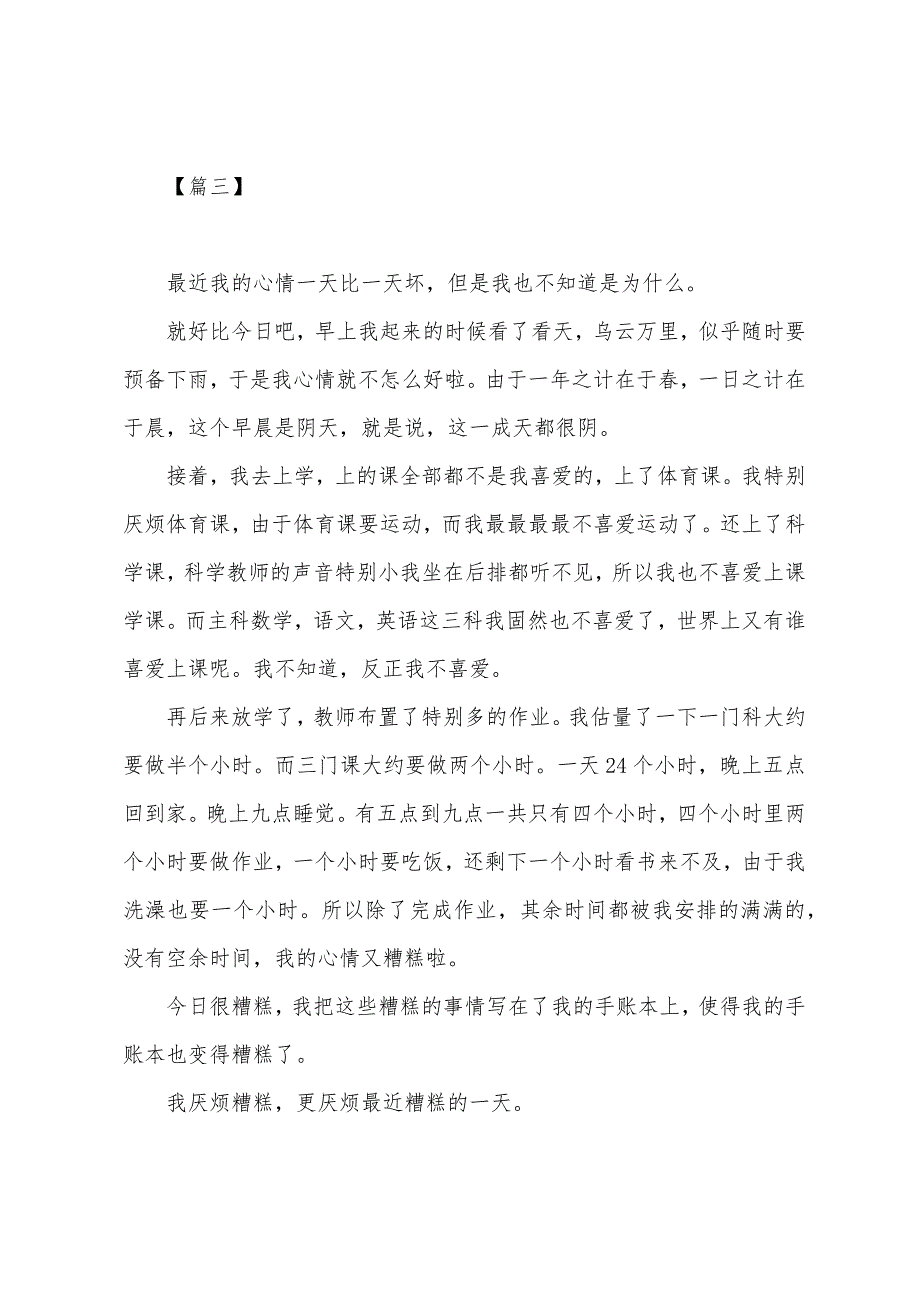 【篇三】
最近我的心情一天比一天坏，但是我也不知道是为什么。
就好比今日吧，早上我起来的时候看了看天，乌云万里，似乎随时要
预备下雨，于是我心情就不怎么好啦。由于一年之计在于春，一日之计在
于晨，这个早晨是阴天，就是说，这一成天都很阴。
接着，我去上学，上的课全部都不是我喜爱的，上了体育课。我特别
厌烦体育课，由于体育课要运动，而我最最最最不喜爱运动了。还上了科
学课，科学教师的声音特别小我坐在后排都听不见，所以我也不喜爱上课
学课。而主科数学，语文，英语这三科我固然也不喜爱了，世界上又有谁
喜爱上课呢。我不知道，反正我不喜爱。
再后来放学了，教师布置了特别多的作业。我估量了一下一门科大约
要做半个小时。而三门课大约要做两个小时。一天24个小时，晚上五点
回到家。晚上九点睡觉。有五点到九点一共只有四个小时，四个小时里两
个小时要做作业，一个小时要吃饭，还剩下一个小时看书来不及，由于我
洗澡也要一个小时。所以除了完成作业，其余时间都被我安排的满满的，
没有空余时间，我的心情又糟糕啦。
今日很糟糕，我把这些糟糕的事情写在了我的手账本上，使得我的手
账本也变得糟糕了。
我厌烦糟糕，更厌烦最近糟糕的一天。